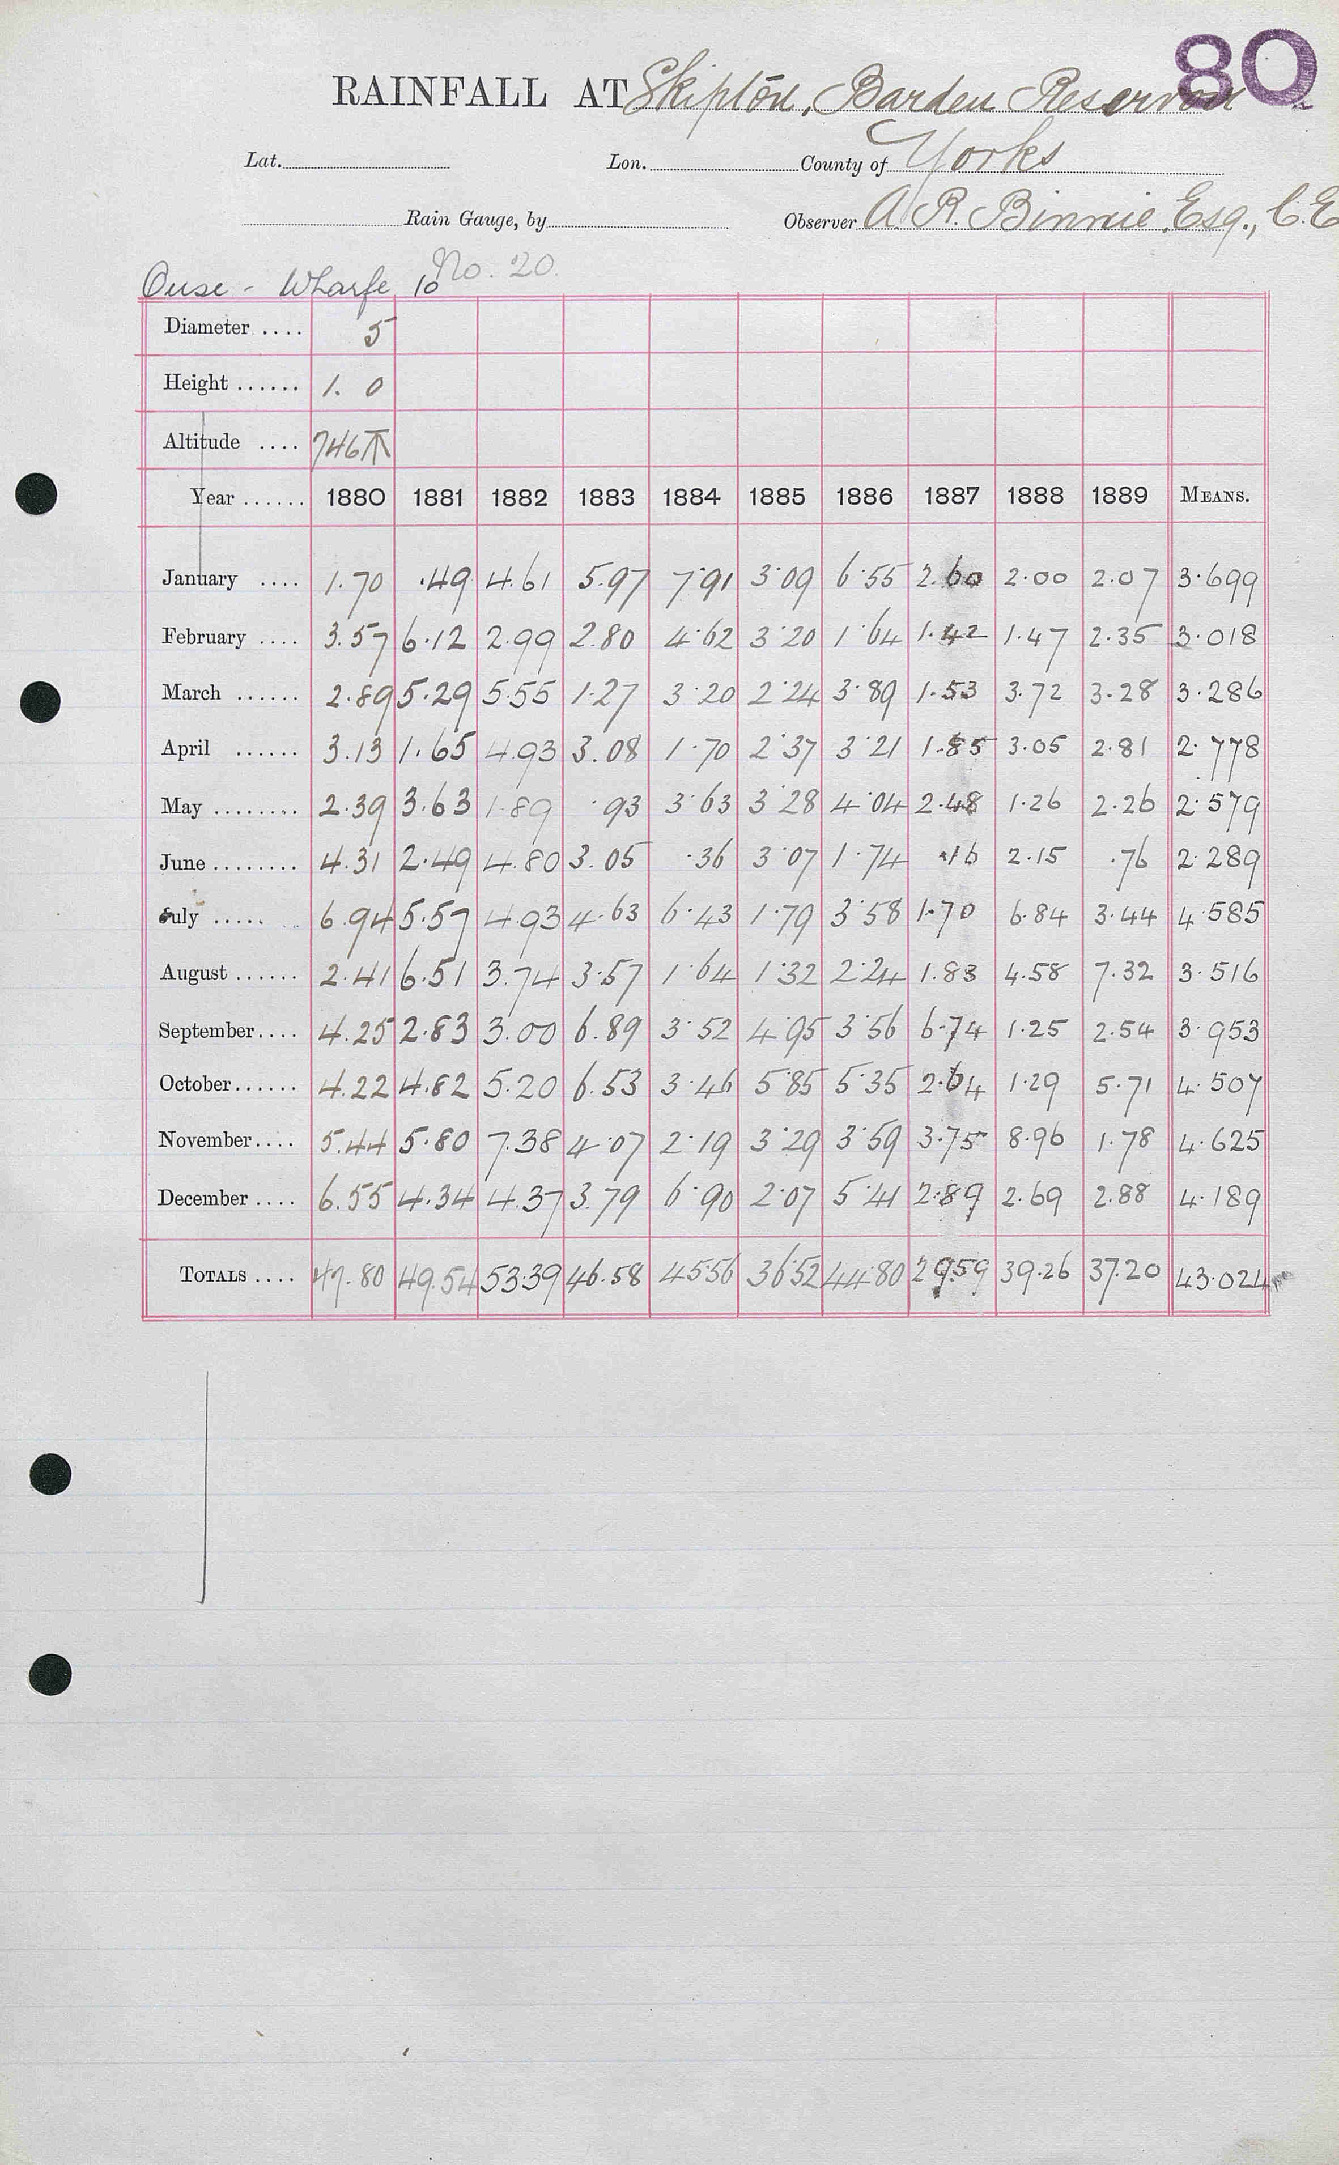 80
RAINFALL AT Skipton, Barden Reservoir
Lat. Lon. County of Yorks
Rain Gauge, by Observer A. R. Binnie, Esq., C.E
Ouse - Wharfe 10 No. 20.
Diameter .... 5
Height ...... 1. 0
Altitude .... 746
Year ...... 1880 1881 1882 1883 1884 1885 1886 1887 1888 1889 MEANS.
January .... 1.70 .49 4.61 5.97 7.91 3.09 6.55 2.60 2.00 2.07 3.699
February .... 3.57 6.12 2.99 2.80 4.62 3.20 1.64 1.42 1.47 2.35 3.018
March ...... 2.89 5.29 5.55 1.27 3.20 2.24 3.89 1.53 3.72 3.28 3.286
April ...... 3.13 1.65 4.93 3.08 1.70 2.37 3.21 1.85 3.05 2.81 2.778
May ........ 2.39 3.63 1.89 .93 3.63 3.28 4.04 2.48 1.26 2.26 2.579
June ........ 4.31 2.49 4.80 3.05 .36 3.07 1.74 .16 2.15 .76 2.289
July ..... 6.94 5.57 4.93 4.63 6.43 1.79 3.58 1.70 6.84 3.44 4.585
August ...... 2.41 6.51 3.74 3.57 1.64 1.32 2.24 1.83 4.58 7.32 3.516
September .... 4.25 2.83 3.00 6.89 3.52 4.95 3.56 6.74 1.25 2.54 3.953
October ...... 4.22 4.82 5.20 6.53 3.46 5.85 5.35 2.64 1.29 5.71 4.507
November .... 5.44 5.80 7.38 4.07 2.19 3.29 3.59 3.75 8.96 1.78 4.625
December .... 6.55 4.34 4.37 3.79 6.90 2.07 5.41 2.89 2.69 2.88 4.189
TOTALS .... 47.80 49.54 53.39 46.58 45.56 36.52 44.80 29.59 39.26 37.20 43.024